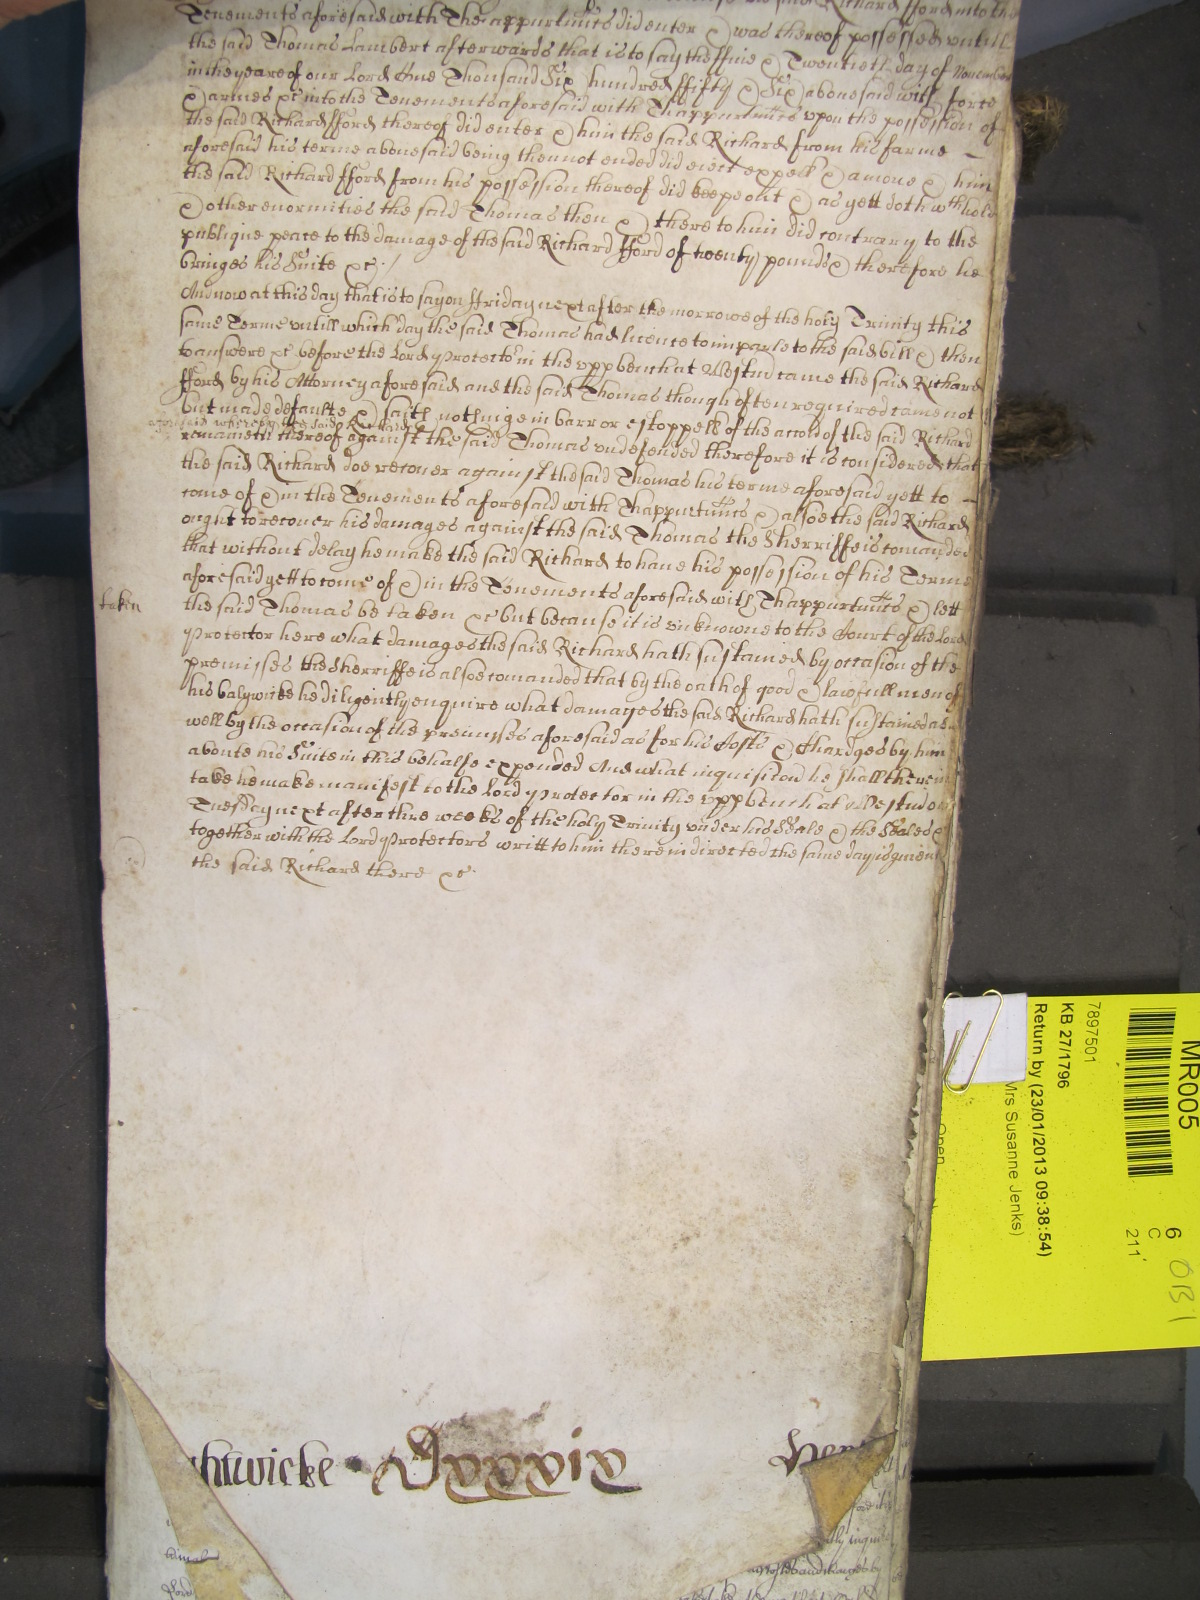 said Richard fford into the
Tenements aforesaid with The appurtnn̄ces did enter & was thereof possessed untill
the said Thomas Lambert afterwards that is to say the ffive & Twentieth day of November
in the yeare of our Lord One Thousand Six hundred ffifty & Six abovesaid with force
& armes &c into the Tenements aforesaid with Thappurtnn̄ces upon the possession of
the said Richard fford thereof did enter & him the said Richard from his farme
aforesaid his terme abovesaid being then not ended did eiect expell & amove & him
the said Richard fford from his possession thereof did keepe out & as yett doth wthhold
& other enormities the said Thomas then & there to him did contrary to the
publique peace to the damage of the said Richard fford of twenty pounds & therefore he
bringes his Suite &c /
And now at this day that is to say on ffriday next after the morrowe of the holy Trinity this
same Terme untill which day the said Thomas had licence to imparle to the said bill & then
to answere &c before the Lord Protector in the upp bench at Westmr came the said Richard
fford by his Attorney aforesaid and the said Thomas though often required came not
but made defaulte & saith nothinge in barr or estoppell of the accōn of the said Richard
aforesaid whereby the said Richard
remaineth thereof against the said Thomas undefended therefore it is considered that
the said Richard doe recover against the said Thomas his terme aforesaid yett to
come of & in the Tenements aforesaid with Thappurtnn̄ces & alsoe the said Richard
ought to recover his damages against the said Thomas the Sherriffe is comanded
that without delay he make the said Richard to have his possession of his Terme
aforesaid yett to come of & in the Tenements aforesaid with Thappurtnn̄ces & lett
taken
the said Thomas be taken &c but because it is unknowne to the Court of the Lord
Protector here what damages the said Richard hath sustained by occasion of the
premisses the Sherriffe is alsoe comanded that by the oath of good & lawfull men of
his balywicke he diligently enquire what damages the said Richard hath sustained as
well by the occasion of the premisses aforesaid as for his Costs & Chardges by him
aboute his Suite in this behalfe expended And what inquisicōn he shall therein
take he make manifest to the Lord Protector in the upp bench at Westmr on
Tuesday next after three weeks of the holy Trinity under his Seale & the Seales &
together with the Lord Protectors writt to him therein directed the same day is given
the said Richard there &c
htwicke
Dxxxix
7897501
KB 27/1796
Return by (23/01/2013 09:38:54)
Mrs Susanne Jenks)
Open
MR005
6
C
211
OB1